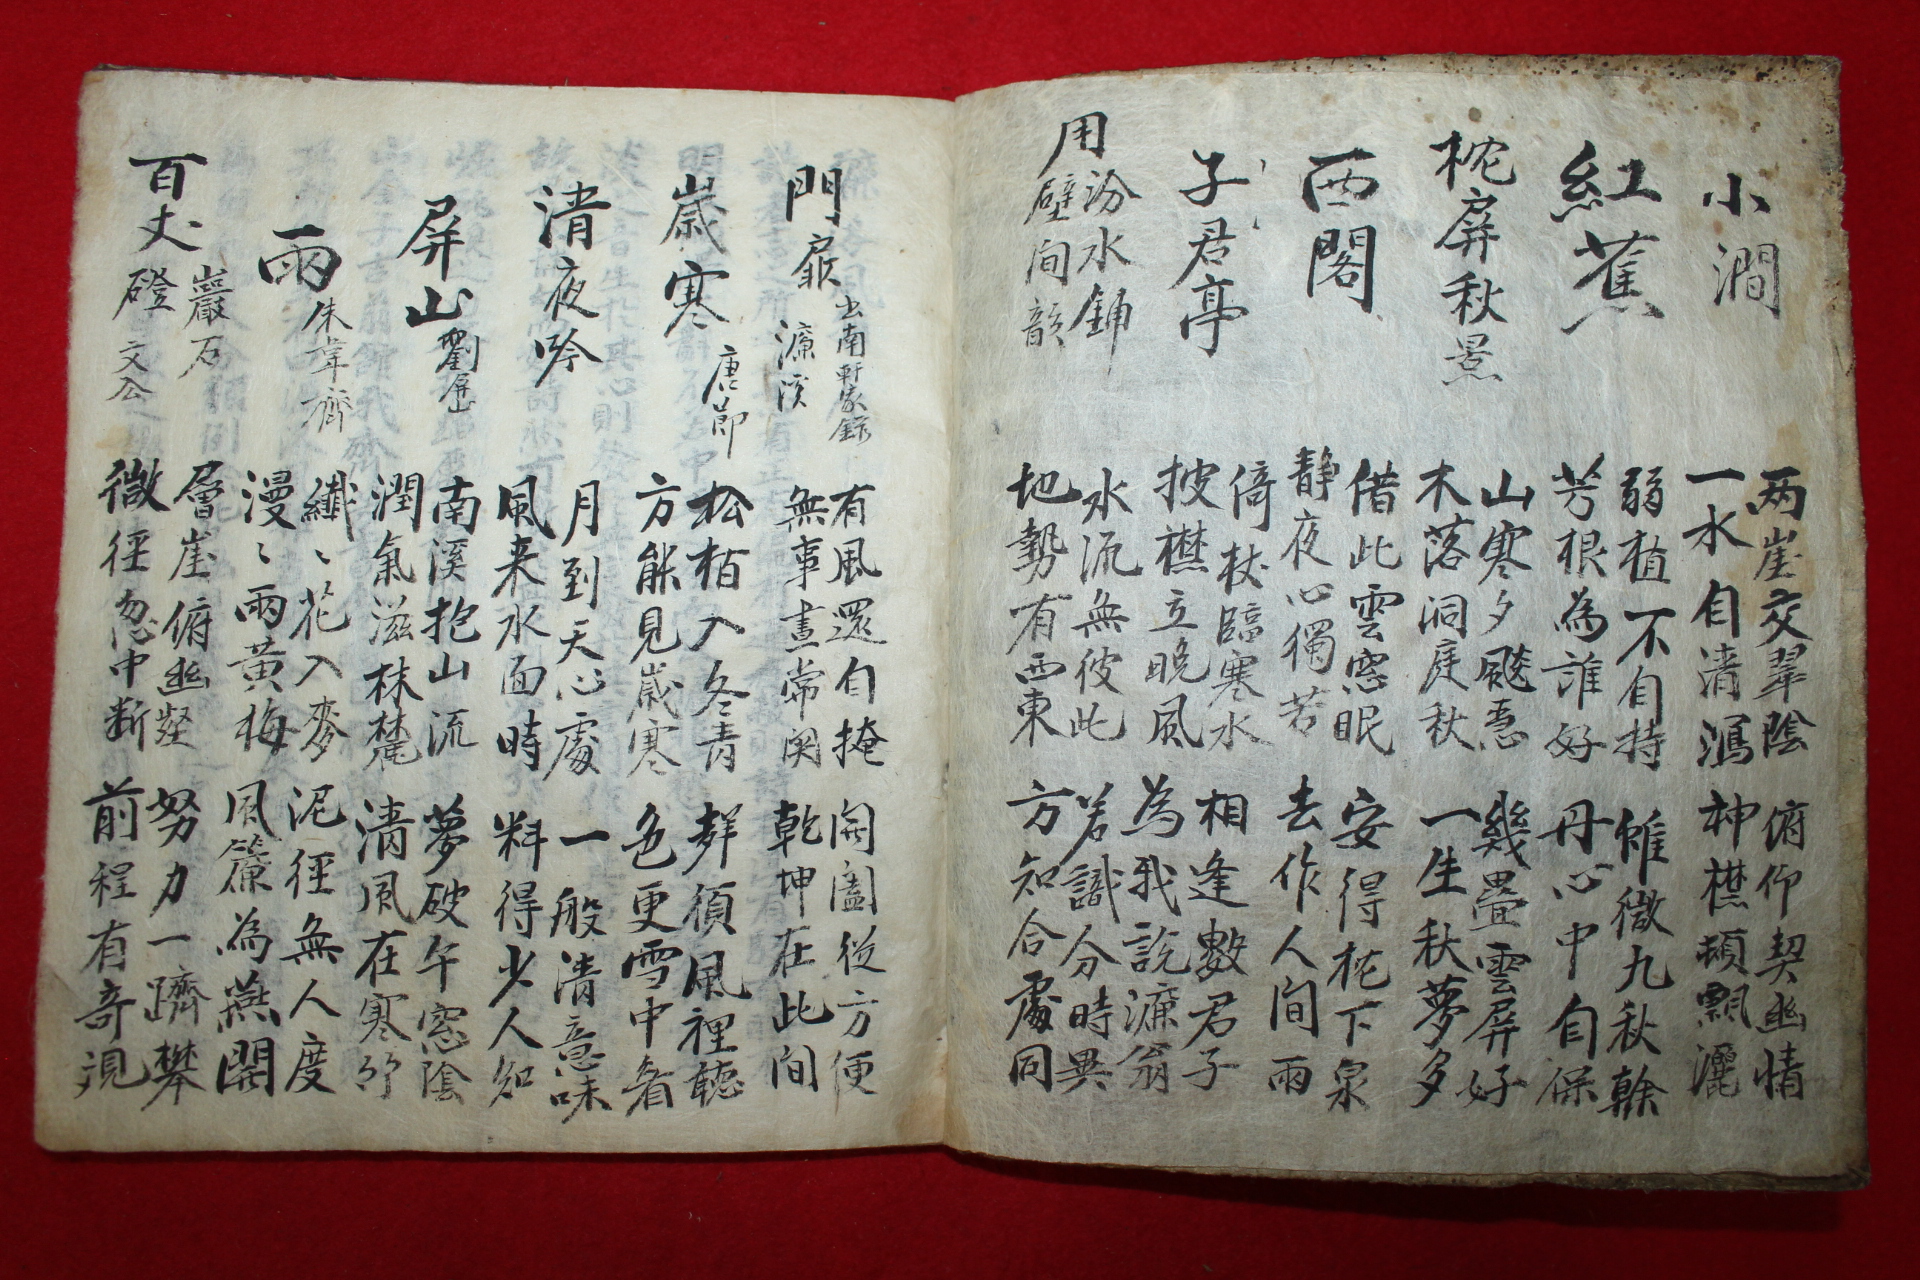 小澗
两崖交翠陰 俯仰契幽情
一水自清瀉 神襟頓飄灑
紅蕉
弱植不自持 惟微九秋榦
芳根為誰好 丹心中自保
枕屏秋景
山寒夕飈悪 幾疊雲屏好
木落洞庭秋 一生秋夢多
西閣
借此雲窓眠 安得枕下泉
静夜心獨苦 去作人間雨
子君亭
倚杖臨寒水 相逢數君子
披襟立晩風 為我說濂翁
用汾水鋪
壁間韻
水流無彼此 若識分時異
地勢有西東 方知合處同
門扉
出南軒家錄
濂溪
有風還自掩 開闔從方便
無事晝常関 乾坤在此间
歳寒
康節
松栢入冬青 頖須風裡聽
方能見歳寒 色更雪中看
清夜吟
月到天心處 一般清意味
風来水面時 料得少人知
屏山
劉屏山
南溪抱山流 夢破午窓陰
潤氣滋抹麓 清風在寒竹
雨
朱韋齊
纖〻花入麥 泥徑無人度
漫〻雨黄梅 風簾為燕開
百丈
巖石
磴 文公
層崖俯幽壑 努力一躋攀
微徑忽中斷 前程有奇覌